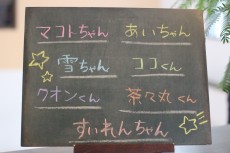 マコトちゃん あいちゃん
雪ちゃん ココくん
クオンくん 茶々丸くん
すいれんちゃん